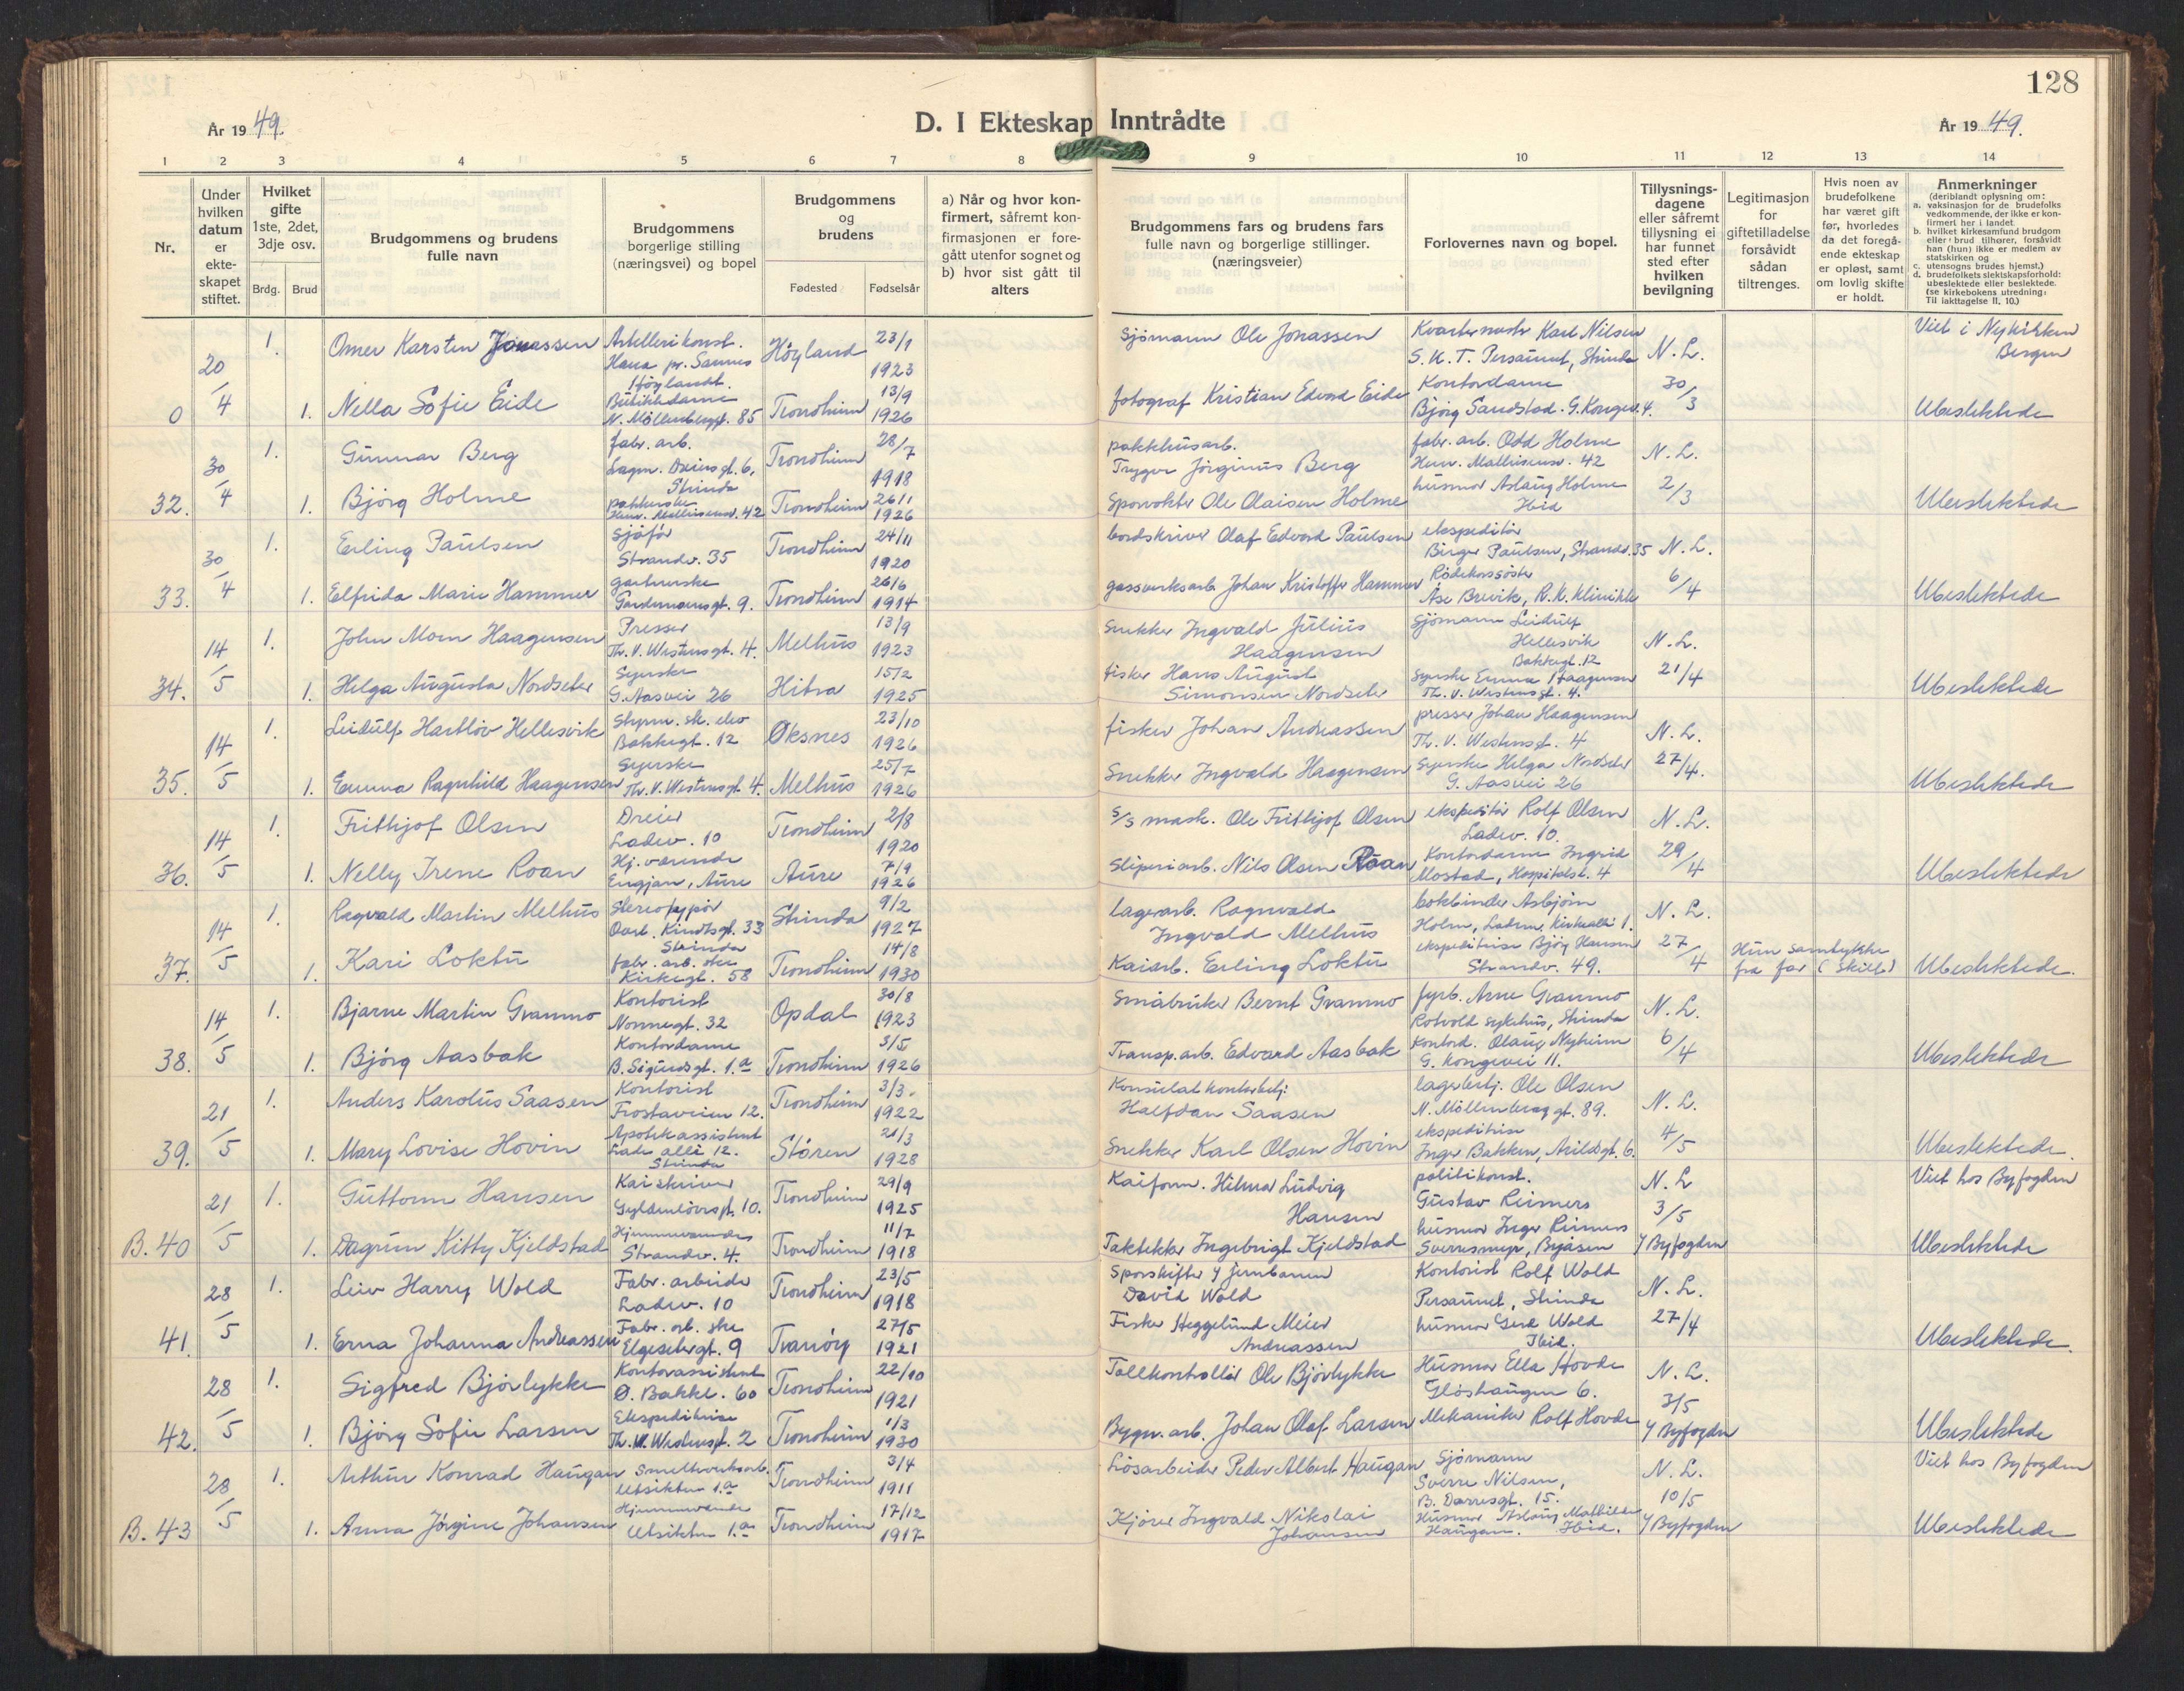 128
År 19 49.
D. I Ekteskap Inntrådte
År 19 49.
1 2 3 4 5 6 7 8 9 10 11 12 13 14
Nr.
Under hvilken datum er ekteskapet stiftet.
Hvilket gifte 1ste, 2det, 3dje osv.
Brdg. Brud
Brudgommens og brudens fulle navn
Brudgommens borgerlige stilling (næringsvei) og bopel
Brudgommens og brudens
Fødested Fødselsår
a) Når og hvor konfirmert, såfremt konfirmasjonen er foregått utenfor sognet og
b) hvor sist gått til alters
Brudgommens fars og brudens fars fulle navn og borgerlige stillinger. (næringsveier)
Forlovernes navn og bopel.
Tillysningsdagene eller såfremt tillysning ei har funnet sted efter hvilken bevilgning
Legitimasjon for giftetilladelse forsåvidt sådan tiltrenges.
Hvis noen av brudefolkene har været gift før, hvorledes da det foregående ekteskap er opløst, samt om lovlig skifte er holdt.
Anmerkninger
(deriblandt oplysning om:
a. vaksinasjon for de brudefolks vedkommende, der ikke er konfirmert her i landet
b. hvilket kirkesamfund brudgom eller brud tilhører, forsåvidt han (hun) ikke er medlem av statskirken og
c. utensogns brudes hjemst.)
d. brudefolkets slektskapsforhold: ubeslektede eller beslektede.
(se kirkebokens utredning: Til iakttagelse II. 10.)
0 20/4 1. Omer Karsten Jonassen Artellerikonst. Hana pr. Sannes Høyland 23/1 1923 Sjömann Ole Jonassen Kvartermester Karl Nilsen S.K.T. Persaunet, Strinda N.L. Viet i Nykirken Bergen
1. Nella Sofie Eide Butikkdame N. Möllenberggt. 85 Trondheim 13/9 1926 fotograf Kristian Edvard Eide Kontordame Bjørg Sandstad. G. Kongev. 4. 30/3 Ubeslektede
32. 30/4 1. Gunnar Berg fabr. arb. Lagm. Dreiersgt. 6, Strinda Trondheim 28/7 1918 pakkhusarb. Trygve Jörginus Berg fabr. arb. Odd Holme Henr. Mathisensv. 42 N.L.
1. Björg Holme pakkerske Henr. Mathisensv. 42 Trondheim 26/1 1926 Sporvokter Ole Olaisen Holme husmor Aslaug Holme Ibid 2/3 Ubeslektede
33. 30/4 1. Erling Paulsen Sjåför Strandv. 35 Trondheim 24/11 1920 bordskriver Olaf Edvard Paulsen ekspeditör Birger Paulsen, Strandv. 35 N.L.
1. Elfrida Marie Hammer gartnerske Gardemoensgt. 9. Trondheim 26/6 1914 gassverksarb. Johan Kristoffer Hammer Rödekorssöster Åse Brevik, R.K. klinikk 6/4 Ubeslektede
34. 14/5 1. John Moen Haagensen Presser Th. V. Westensgt. 4. Melhus 13/9 1923 Snekker Ingvald Julius Haagensen Sjömann Leidulf Hellesvik Bakkegt. 12 N.L.
1. Helga Augusta Nordseter Syerske G. Aasvei 26 Hitra 15/2 1925 fisker Hans August Simonsen Nordseter Syerske Emma Haagensen Th. V. Westensgt. 4. 21/4 Ubeslektede
35. 14/5 1. Leidulf Hartlöv Hellesvik Styrm. sk. elev Bakkegt. 12 Øksnes 23/10 1926 fisker Johan Andreassen presser Johan Haagensen Th. V. Westensgt. 4 N.L.
1. Emma Ragnhild Haagensen Syerske Th. V. Westensgt. 4. Melhus 25/7 1926 Snekker Ingvald Haagensen Syerske Helga Nordseter G. Aasvei 26 27/4. Ubeslektede
36. 14/5 1. Frithjof Olsen Dreier Ladev. 10 Trondheim 2/8 1920 S/S mask. Ole Frithjof Olsen ekspeditör Rolf Olsen Ladev. 10. N.L.
1. Nelly Irene Roan Hj. værende Engjan, Aure Aure 7/9 1926 Sliperiarb. Nils Olsen Roan Kontordame Ingrid Mostad, Hospitalst. 4 29/4 Ubeslektede
37. 14/5 1. Ragvald Martin Melhus Stereotyppör Oarl. Kindtsgt. 33 Strinda Strinda 9/2 1927 lagerarb. Ragnvald Ingvald Melhus bokbinder Asbjörn Holm, Ladem. kirkeallé 1. N.L.
1. Kari Loktu fabr. arb. ske Kirkegt. 58 Trondheim 14/8 1930 Kaiarb. Erling Loktu ekspeditrise Bjørg Hansen Strandv. 49. 27/4 Hun samtykke fra far (skilt) Ubeslektede.
38. 14/5 1. Bjarne Martin Gvammo Kontorist Nonnegt. 32 Opdal 30/8 1923 Småbruker Bernt Gvammo fyrb. Arne Gvammo Rotvold sykehus, Strinda N.L.
1. Björg Aasbak Kontordame B. Sigurdsgt. 1.a Trondheim 3/5 1926 Transp. arb. Edvard Aasbak Kontord. Olaug Nyheim G. Kongevei 11. 6/4 Ubeslektede
39. 21/5 1. Anders Karolus Saasen Kontorist Frostaveien 12. Trondheim 3/3 1922 Konsulatkontorbetj. Halfdan Saasen lagerbetj. Ole Olsen N. Möllenberggt. 89. N.L.
1. Mary Lovise Hovin Apotekassistent Lade allé 12. Strinda Stören 21/3 1928 Snekker Karl Olsen Hovin ekspeditrise Inger Bakken, Arildsgt. 6. 4/5 Ubeslektede.
B. 40 21/5 1. Guttorm Hansen Kaiskriver Gyldenlövesgt. 10. Trondheim 29/9 1925 Kaiform. Hilmar Ludvig Hansen politikonst. Gustav Reimers N.L. Viet hos Byfogden
1. Dagrun Kitty Kjeldstad Hjemmeværende Strandv. 4. Trondheim 11/7 1918 Taktekker Ingebrigt Kjeldstad husmor Inger Reimers Sverresmyr, Byåsen 3/5 Byfogden Ubeslektede
41. 28/5 1. Leiv Harry Wold Fabr. arbeider Ladev. 10 Trondheim 23/5 1918 Sporskifter v jernbanen David Wold Kontorist Rolf Wold Persaunet, Strinda N.L.
1. Erna Johanna Andreassen Fabr. arb. ske Elgesetergt. 9 Tranöy 27/5 1921 Fisker Heggelund Meier Andreassen husmor Gerd Wold Ibid. 27/4 Ubeslektede.
42. 28/5 1. Sigfred Bjørlykke Kontorassistent Ø. Bakkl. 60 Trondheim 22/10 1921 Tollkontrollör Ole Björlykke Husmor Ella Hovde Glöshaugen 6. N.L.
1. Bjørg Sofie Larsen Ekspeditrise Th. W. Westensgt. 2 Trondheim 1/3 1930 Bygn. arb. Johan Olaf Larsen Mekaniker Rolf Hovde 3/5 Byfogden Ubeslektede
B. 43 28/5 1. Arthur Konrad Haugan Smelteverksarb. Utsikten 1.a Trondheim 3/4 1911 Lösarbeider Peder Albert Haugan Sjömann Sverre Nilsen, B. Darresgt. 15. N.L. Viet hos Byfogden
1. Anna Jörgine Johansen Hjemmeværende Utsikten 1.a Trondheim 17/12 1917 Kjörer Ingvald Nikolai Johansen Husmor Aslaug Mathilde Haugan. Ibid. 10/5 Byfogden Ubeslektede